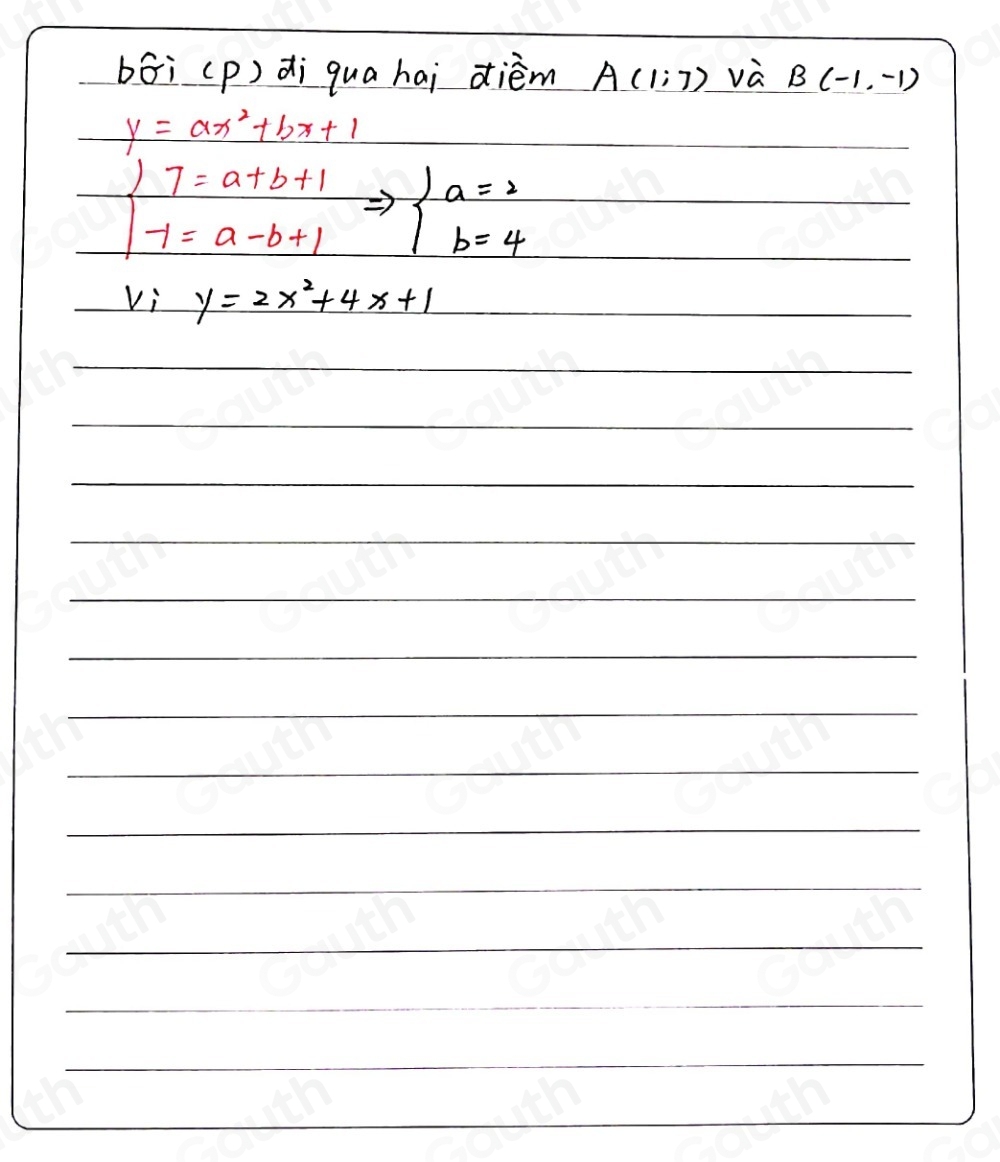 bởi (P) đi qua hai điểm A(1;7) và B(-1.-1)
y = ax²+bx+1
{ 7 = a+b+1 => { a = 2
-1 = a-b+1 b = 4
Vi y = 2x²+4x+1